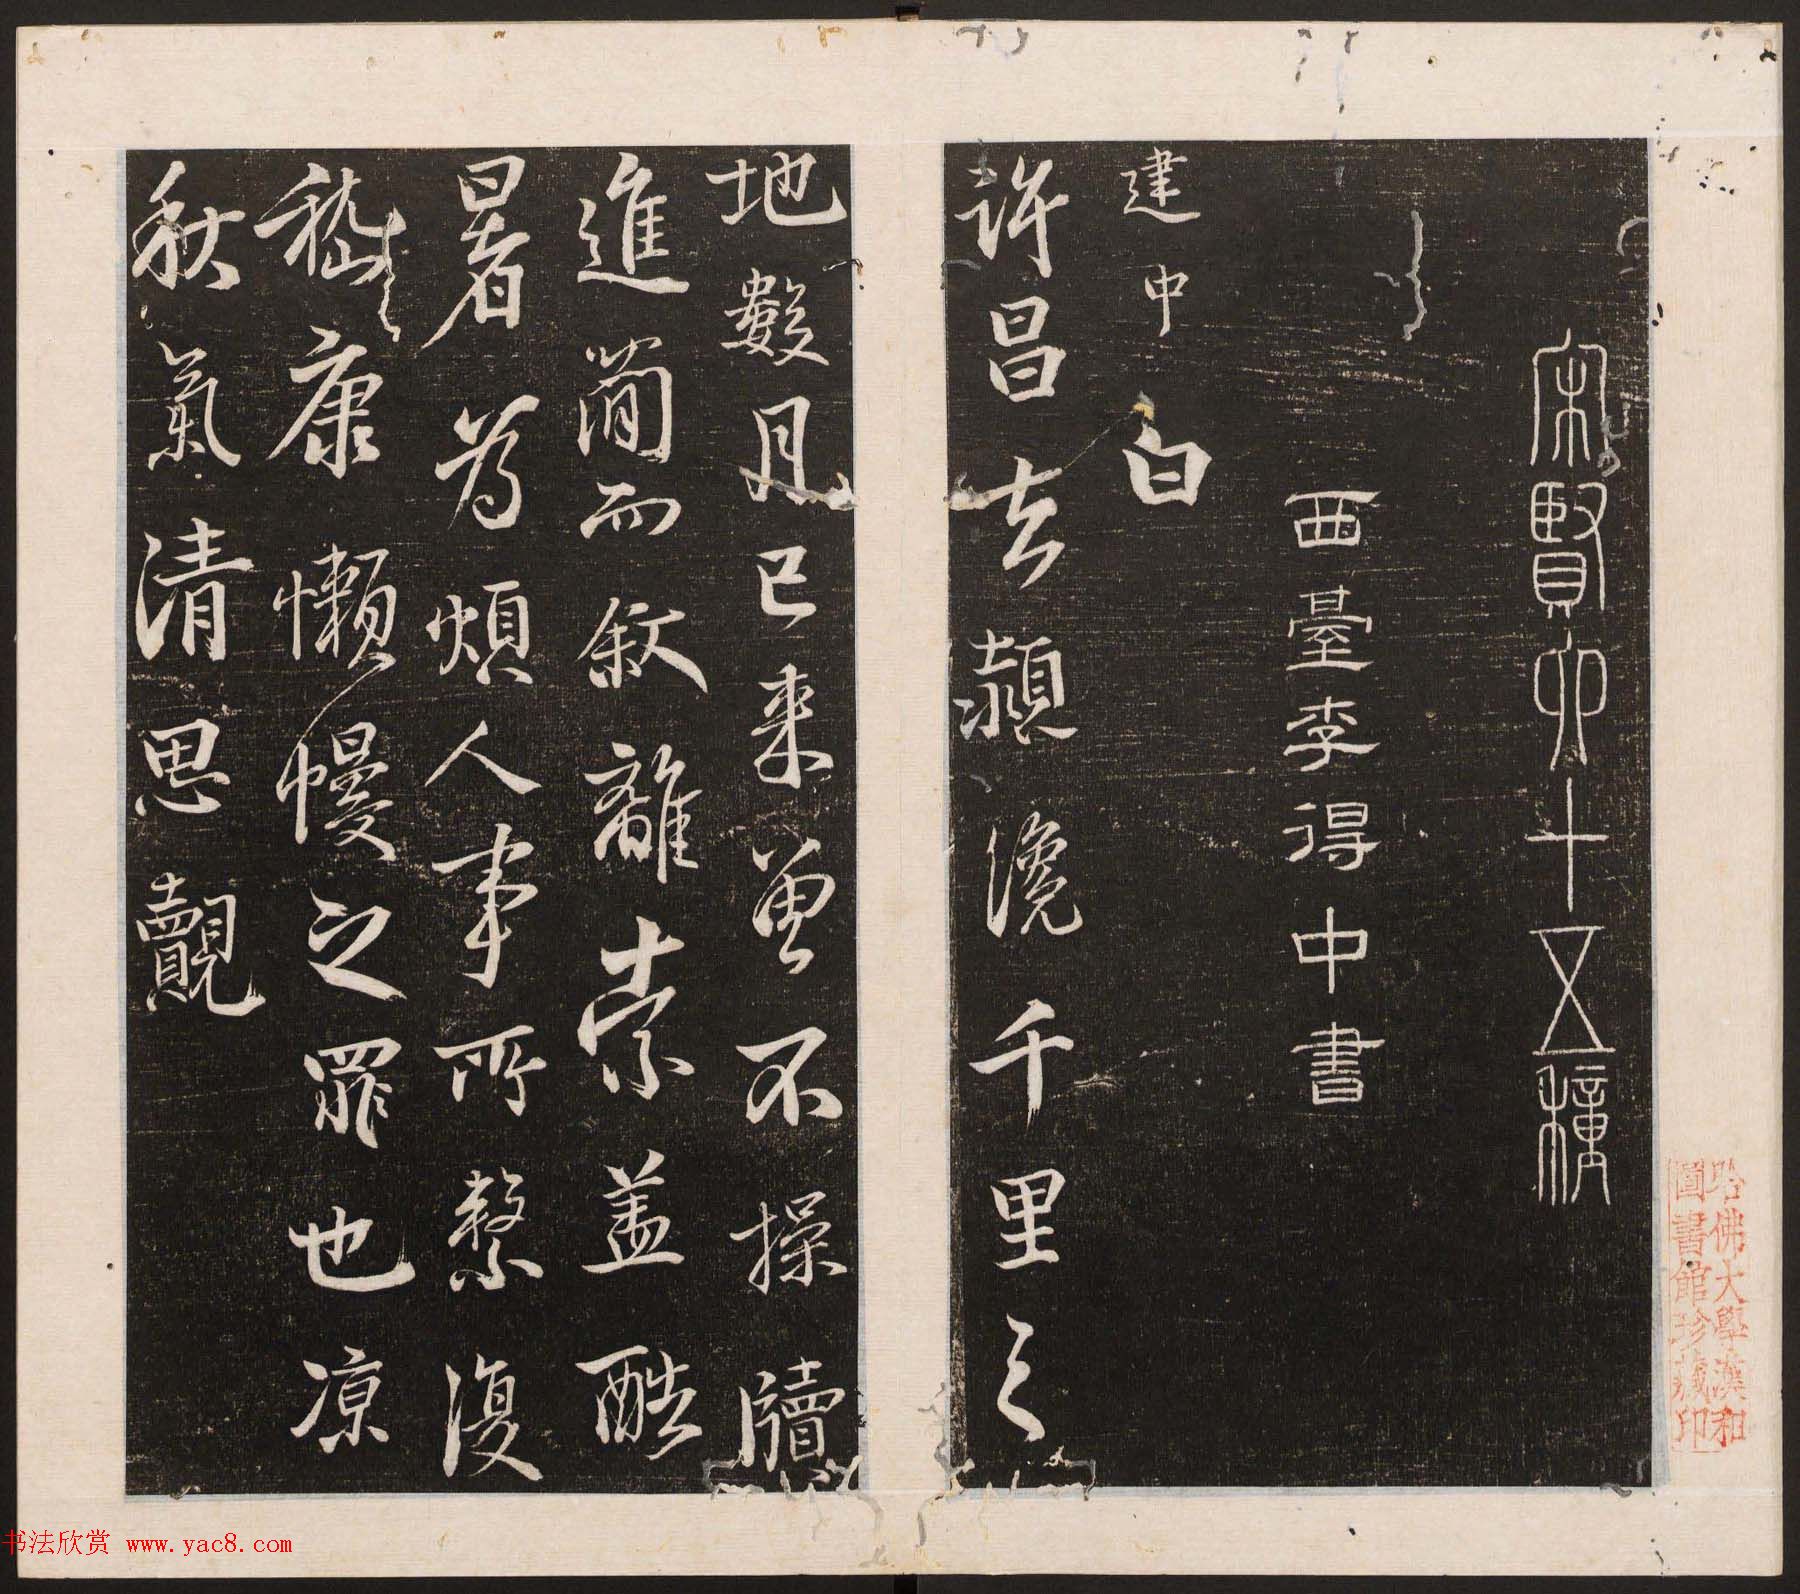 宋賢六十五種
西臺李得中書
建中白
許昌去潁纔千里之
地數月已來曾不操牘
進簡而敘離索蓋酷
暑為煩人事所繫復
嵇康懶慢之罪也涼
秋氣清思覿
哈佛大學漢和
圖書館珍藏印
书法欣赏 www.yac8.com